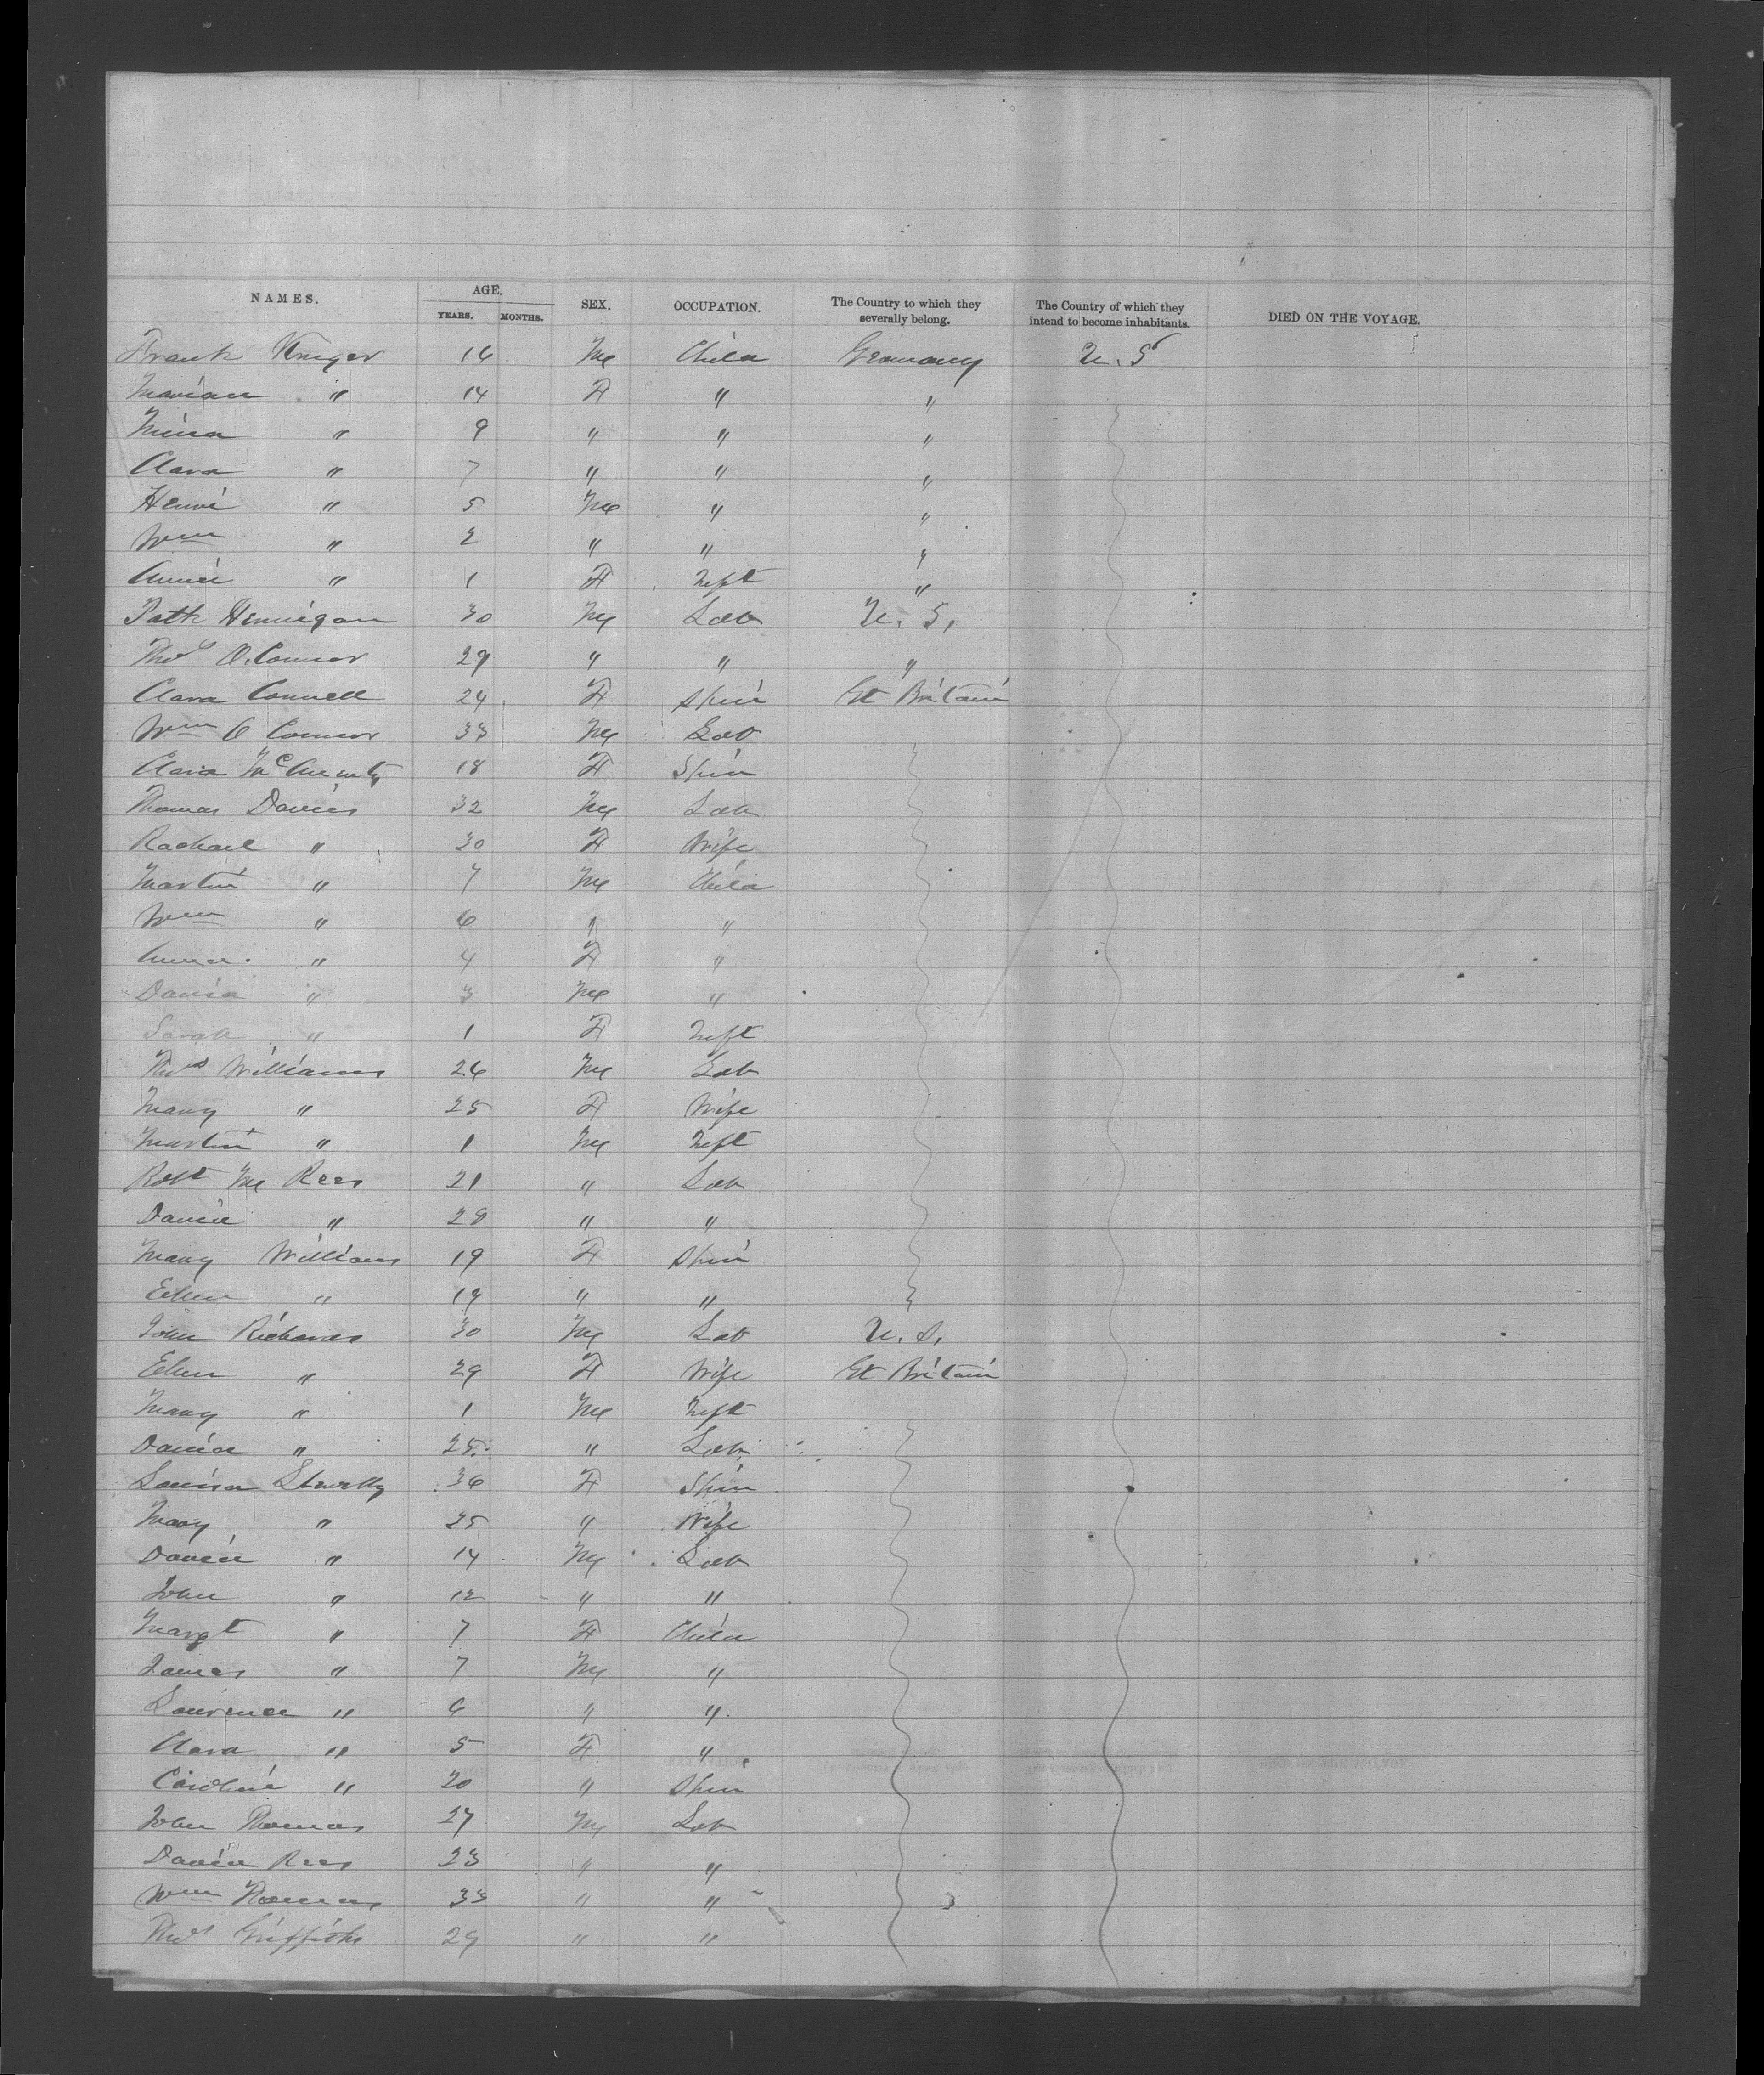 NAMES. AGE. YEARS. MONTHS. SEX. OCCUPATION. The Country to which they severally belong. The Country of which they intend to become inhabitants. DIED ON THE VOYAGE.
Frank Kruger 16 M Child Germany U.S
Marian " 14 F " "
Minna " 9 " " "
Clara " 7 " " "
Henri " 5 M " "
Wm " 2 " " "
Annie " 1 F Inft "
Patk Hennigan 30 M Lab U.S.
Thos O.Connor 29 " " "
Clara Connell 24 F Spin Gt Britain
Wm O Connor 33 M Lab
Clara 18 F Spin
Thomas Davies 32 M Lab
Rachael " 30 F Wife
Martin " 7 M Child
Wm " 6 " "
Anna " 4 F "
David " 3 M "
Sarah " 1 F Inft
Thos Williams 26 M Lab
Mary " 25 F Wife
Martin " 1 M Inft
Robt Mc Rees 21 " Lab
David " 28 " "
Mary Williams 19 F Spin
Ellen " 19 " "
John Richards 30 M Lab U.S.
Ellen " 29 F Wife Gt Britain
Mary " 1 M Inft
David " 25 " Lab
Louisa 36 F Spin
Mary " 25 " Wife
David " 14 M Lab
John " 12 " "
Margt " 7 F Child
James " 7 M "
Lawrence " 6 " "
Clara " 5 F "
Caroline " 20 " Spin
John Thomas 27 M Lab
David Rees 23 " "
Wm Thomas 33 " "
Thos Griffiths 29 " "